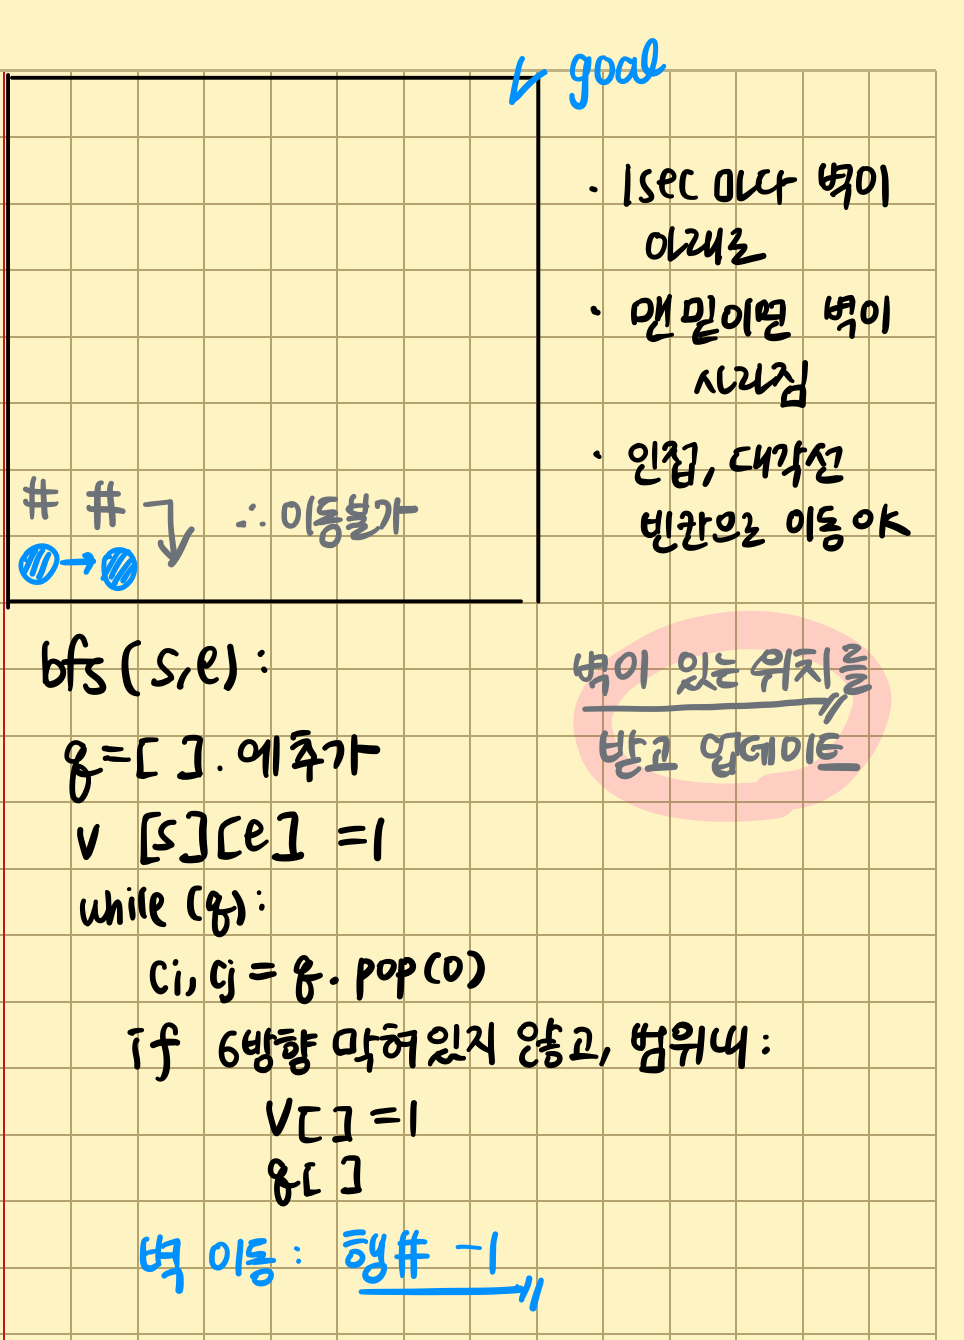 goal
· 1sec 마다 벽이
아래로
· 맨 밑이면 벽이
사라짐
· 인접, 대각선
빈칸으로 이동 야
# #
∴ 이동불가
→
bfs (s,e) :
q=[ ]. 에 추가
v [s][e] =1
while (q):
ci, cj = q. pop(0)
if 6방향 막혀있지 않고, 범위내 :
V[ ] =1
q[ ]
벽 이동 : 행# -1
벽이 있는 위치를
받고 업데이트